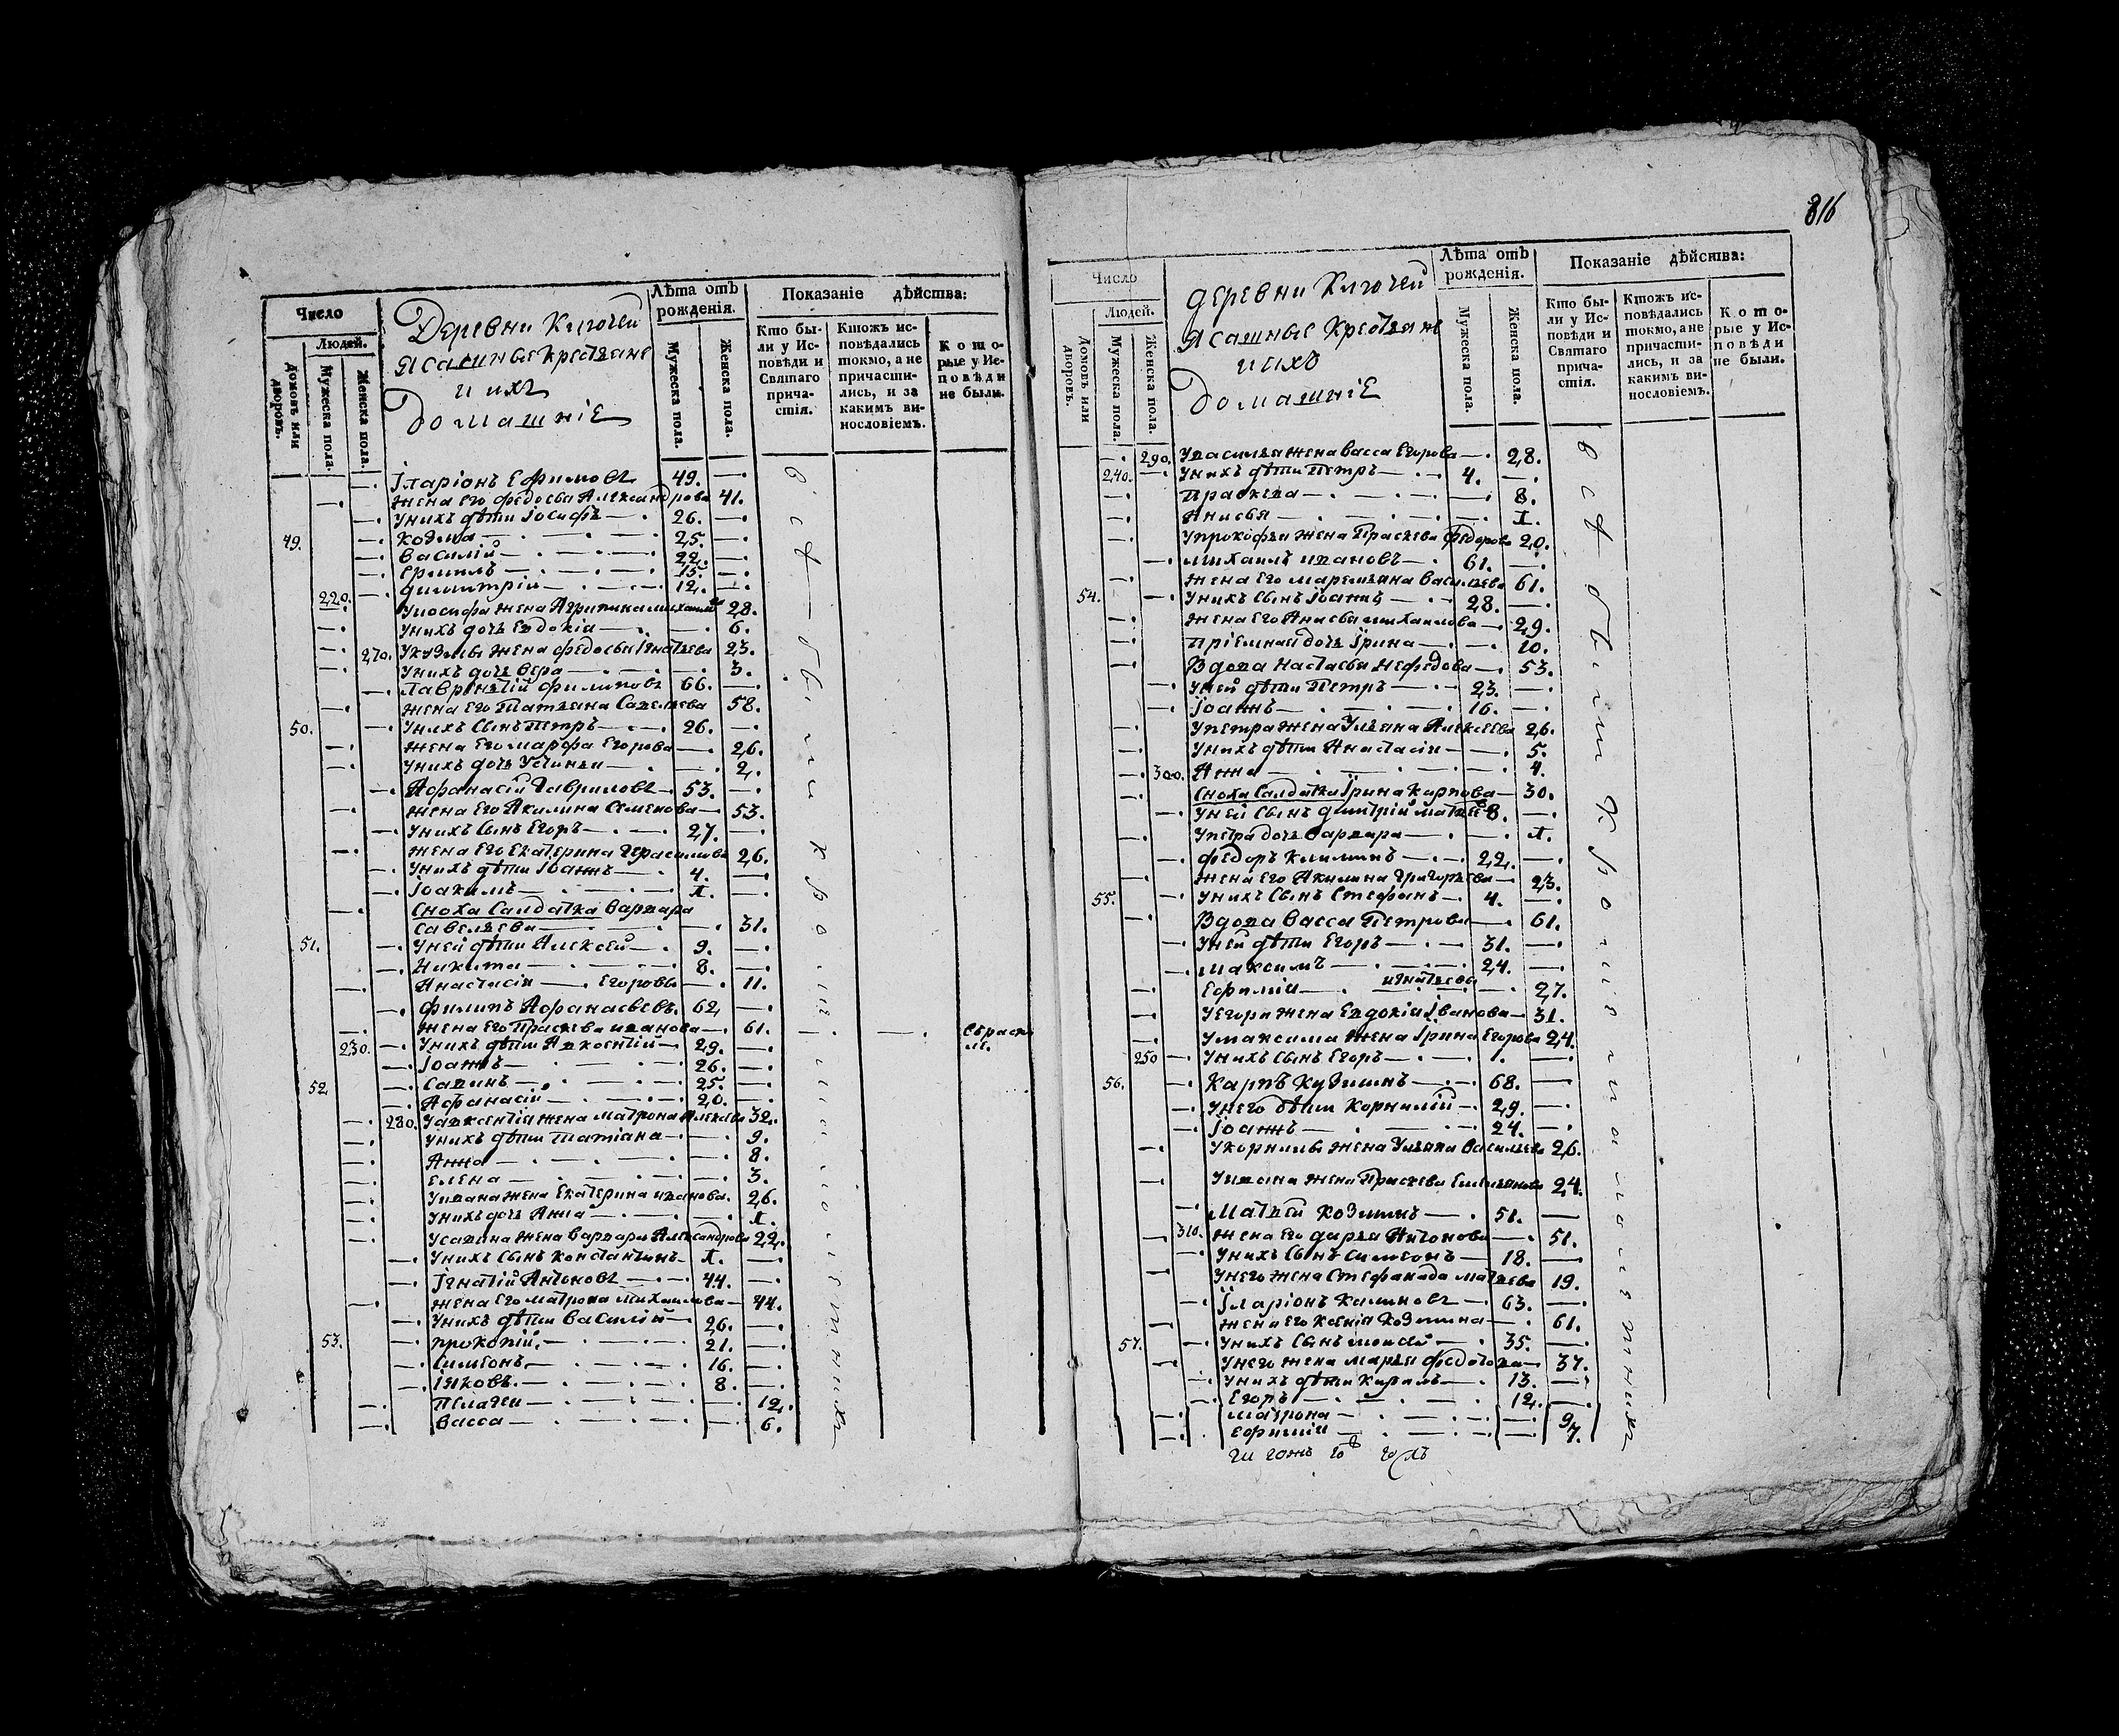 816
Число
Людей.
Домовъ или дворовъ.
Мужеска пола.
Женска пола.
Деревни Ключей
Ясашные крестьяне
и ихъ
домашніе
Лѣта отъ рожденія.
Мужеска пола.
Женска пола.
Показаніе дѣйства:
Кто бы-
ли у Ис-
повѣди и
Святаго
прича-
стія.
Ктожъ ис-
повѣдались
токмо, а не
причасти-
лись, и за
какимъ ви-
нословіемъ.
Кото-
рые у Ис-
повѣди
не были.
Іларіонъ Ефимовъ 49.
жена его Федосья Александрова 41.
у нихъ дѣти Іосифъ 26.
49. Козма 25.
Василій 22.
Ермилъ 15.
Димитрій 12.
220. У Иосифа жена Агрипина 28.
у нихъ дочь Евдокіа 6.
270. У Кузмы жена Федосья Игнатьева 23.
у нихъ дочь Вера 3.
Лаврентій Филиповъ 66.
жена его Татьяна Савельева 58.
50. у нихъ сынъ Петръ 26.
жена его Марфа Егорова 26.
у нихъ дочь Устинья 2.
Афанасій Гавриловъ 53.
жена его Акилина Семенова 53.
у нихъ сынъ Егоръ 27.
жена его Екатерина Герасимова 26.
у нихъ дѣти Іоаннъ 4.
Іоакимъ 1.
сноха салдатка Варвара
Савельева 31.
51. у ней дѣти Алексей 9.
Никита 8.
Анастасія Егоровы 11.
Филипъ Афанасьевъ 62.
жена его Прасковья Иванова 61.
230. у нихъ дѣти Авксентій 29.
Іоаннъ 26.
52. Савинъ 25.
Афанасій 20.
280. У Авксентія жена Матрона Алексеева 32.
у нихъ дѣти Татіана 9.
Анна 8.
Елена 3.
У Ивана жена Екатерина Иванова. 26.
у нихъ дочь Анна 1.
У Савина жена Варвара Александрова 22.
у нихъ сынъ Константинъ 1.
Ігнатій Антоновъ 44.
жена его Матрона Михаилова 44.
у нихъ дѣти Василій 26.
53. Прокопій. 21.
Симеонъ. 16.
Іяковъ. 8.
Пелагея 12.
Васса 6.
всѣ были кромѣ малолетныхъ
Число
Людей.
Домовъ или дворовъ.
Мужеска пола.
Женска пола.
деревни Ключей
Ясашные крестьяне
и ихъ
домашніе
Лѣта отъ рожденія.
Мужеска пола.
Женска пола.
Показаніе дѣйства:
Кто бы-
ли у Ис-
повѣди и
Святаго
прича-
стія.
Ктожъ ис-
повѣдались
токмо, а не
причасти-
лись, и за
какимъ ви-
нословіемъ.
Кото-
рые у Ис-
повѣди
не были.
290. У Василья жена Васса Егорова 28.
240. У нихъ дѣти Петръ 4.
Праскева 8.
Анисья 1.
У Прокофья жена Праскева Федорова 20.
Михаилъ Ивановъ 61.
жена его Маремьяна Васильева 61.
54. у нихъ сынъ Іоаннъ 28.
жена его Анисья Михаилова 29.
пріемная дочь Ірина 10.
Вдова Настасья Нефедова 53.
у ней дѣти Петръ 23.
Іоаннъ 16.
У Петра жена Ульяна Алексеева 26.
у нихъ дѣти Анастасія 5.
300. Анна 4.
сноха салдатка Ірина Карпова 30.
у ней сынъ Димитрій 8.
У Петра дочь Варвара 1.
Федоръ Климинъ 22.
жена его Акилина Григорьева 23.
55. у нихъ сынъ Стефанъ 4.
Вдова Васса Петрова 61.
у ней дѣти Егоръ 31.
Максимъ 24.
Ефимія Игнатьевы 27.
У Егора жена Евдокія Іванова 31.
У Максима жена Ірина Егорова 24.
250 у нихъ сынъ Егоръ 1.
56. Карпъ Кузминъ 68.
у него дѣти Корнилій 29.
Іоаннъ 24.
У Корнилы жена Ульяна Васильева 26.
У Ивана жена Праскева Емельянова 24.
Матвей Козминъ 51.
310. жена его Дарья Антонова 51.
у нихъ сынъ Симеонъ 18.
у него жена Стефанида Матвеева 19.
Іларіонъ Калиновъ 63.
жена его Ксенія Козмина 61.
57. у нихъ сынъ Моисей 35.
у него жена Марья Федотова 37.
у нихъ дѣти Кирилъ 13.
Егоръ 12.
Матрона 9.
Ефимія 7.
всѣ были кромѣ малолетныхъ